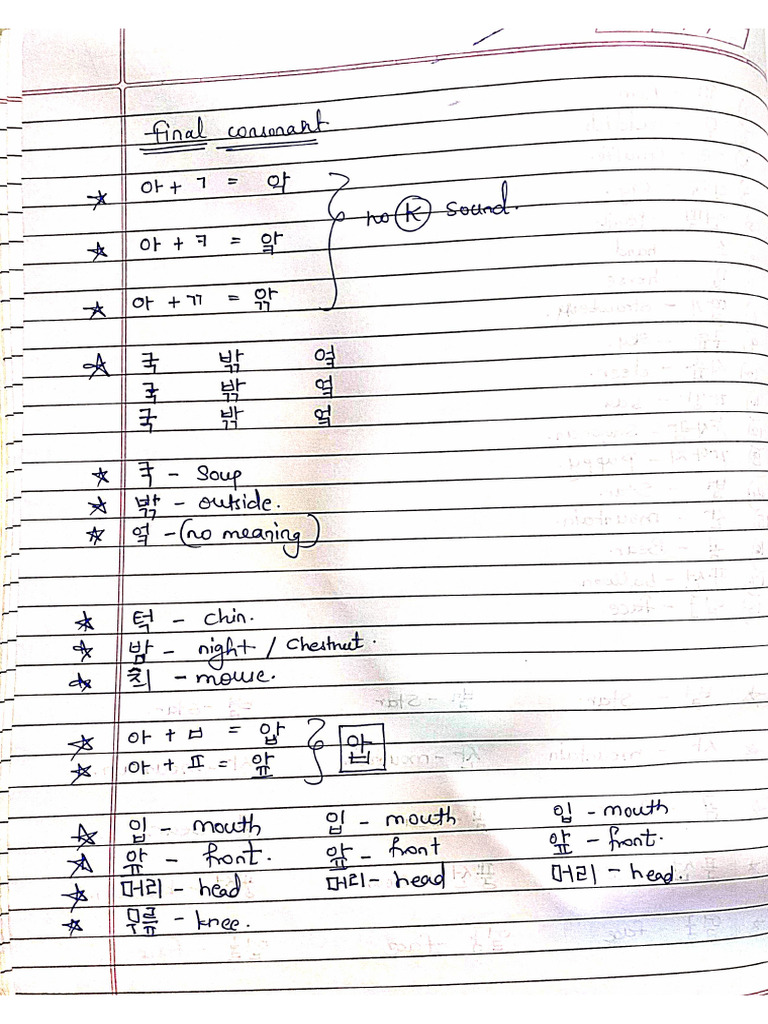 final consonant
아 + ㄱ = 악
아 + ㅋ = 앜
아 + ㄲ = 앆
no K sound.
국 밖 엌
국 밖 엌
국 밖 엌
국 - soup
밖 - outside.
엌 - (no meaning)
턱 - chin.
밤 - night / chestnut.
- mouse.
아 + ㅂ = 압
아 + ㅍ = 앞
압
입 - mouth 입 - mouth 입 - mouth
앞 - front. 앞 - front 앞 - front.
머리 - head 머리 - head 머리 - head.
무릎 - knee.